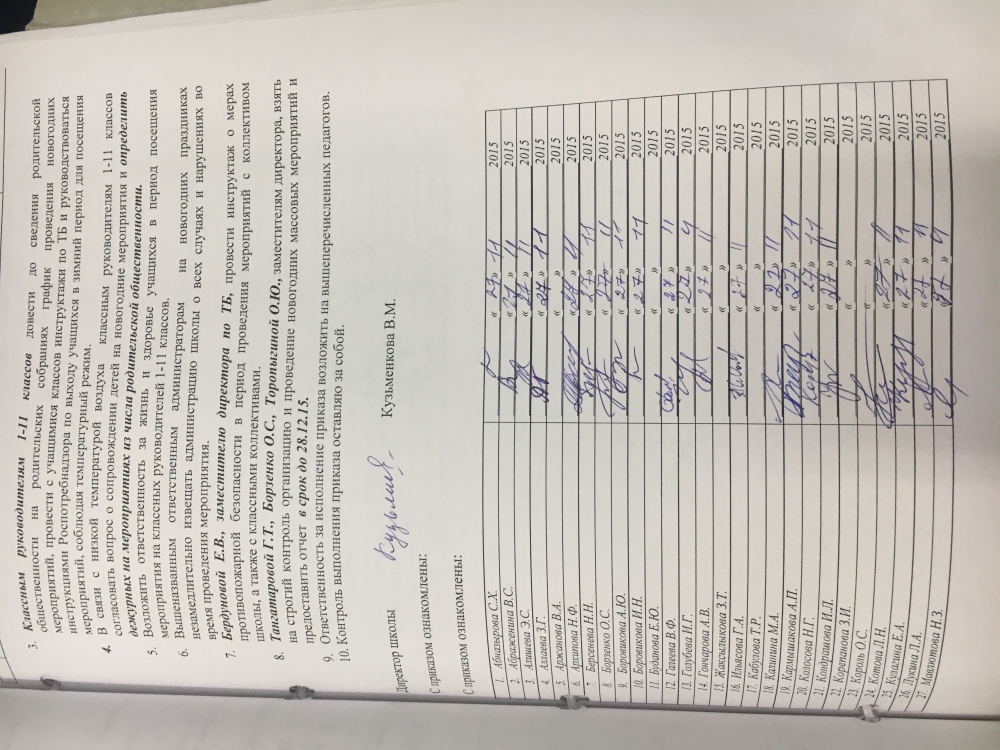 3. Классным руководителям 1-11 классов довести до сведения родительской
общественности на родительских собраниях график проведения новогодних
мероприятий, провести с учащимися классов инструктажи по ТБ и руководствоваться
инструкциями Роспотребнадзора по выходу учащихся в зимний период для посещения
мероприятий, соблюдая температурный режим.
4. В связи с низкой температурой воздуха классным руководителям 1-11 классов
согласовать вопрос о сопровождении детей на новогодние мероприятия и определить
дежурных на мероприятиях из числа родительской общественности.
5. Возложить ответственность за жизнь и здоровье учащихся в период посещения
мероприятия на классных руководителей 1-11 классов.
6. Вышеназванным ответственным администраторам на новогодних праздниках
незамедлительно извещать администрацию школы о всех случаях и нарушениях во
время проведения мероприятия.
7. Бердуновой Е.В., заместителю директора по ТБ, провести инструктаж о мерах
противопожарной безопасности в период проведения мероприятий с коллективом
школы, а также с классными коллективами.
8. Тангатаровой Г.Т., Борзенко О.С., Торопыгиной О.Ю., заместителям директора, взять
на строгий контроль организацию и проведение новогодних массовых мероприятий и
предоставить отчет в срок до 28.12.15.
9. Ответственность за исполнение приказа возложить на вышеперечисленных педагогов.
10. Контроль выполнения приказа оставляю за собой.
Директор школы Кузьменкова В.М.
С приказом ознакомлены:
С приказом ознакомлены:
1. Абназырова С.Х. « 27 » 11 2015
2. Абраженина В.С. « 27 » 11 2015
3. Алишева Э.С. « 27 » 11 2015
4. Аллаева З.Г. « 27 » 11 2015
5. Аржанова В.А. « » 2015
6. Архипова Н.Ф. « 27 » 11 2015
7. Берсенева Н.Н. « 27 » 11 2015
8. Борзенко О.С. « 27 » 11 2015
9. Боровикова А.Ю. « 27 » 11 2015
10. Боровикова И.Н. « 27 » 11 2015
11. Буданова Е.Ю. « » 2015
12. Галеева В.Ф. « 27 » 11 2015
13. Голубева И.Г. « 27 » 11 2015
14. Гончарова А.В. « 27 » 11 2015
15. Жаксылыкова З.Т. « » 2015
16. Ильясова Г.А. « 27 » 11 2015
17. Кабулова Т.Р. « » 2015
18. Калинина М.А. « 27 » 11 2015
19. Кармышакова А.П. « 27 » 11 2015
20. Колосова Н.Г. « 27 » 11 2015
21. Кондрашова И.Л. « 27 » 11 2015
22. Корепанова З.И. « » 2015
23. Король О.С. « » 2015
24. Котова Л.Н. « 27 » 11 2015
25. Кулагина Е.А. « 27 » 11 2015
26. Лукина Л.А. « 27 » 11 2015
27. Мавлютова Н.З. « 27 » 11 2015